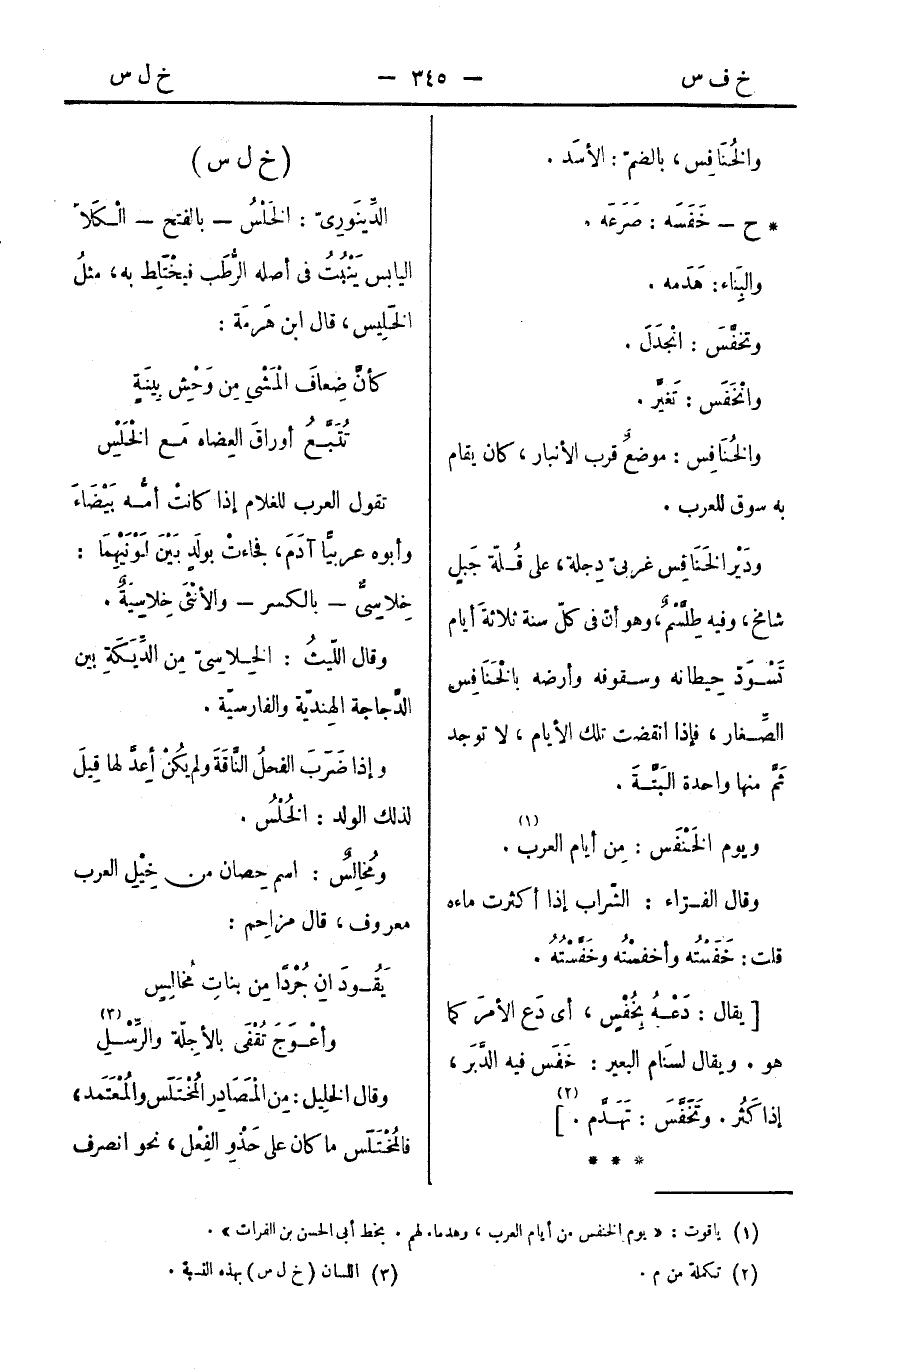 خ ف س — ٣٤٥ — خ ل س
والخُنَافِس، بالضمّ: الأسَد.
* ح — خَفَسَه : صَرَعَه .
والبِنَاء: هَدَمه .
وتخفَّسَ : انْجدَلَ .
وانْخَفَس : تَغيَّر .
والخُنَافِس : موضعٌ قرب الأنبار ، كان يقام
به سوق للعرب .
ودَيْر الخَنَافِس غربىّ دِجلة، على قُـلّة جَبلٍ
شامخٍ، وفيه طِلَّسْمٌ، وهو أنّ فى كلّ سنة ثلاثةَ أيام
تَسْـوَدّ حِيطانه وسـقوفه وأرضه بالخَنَافِسِ
الصِّغار ، فإذا انقضت تلك الأيام ، لا توجد
ثَمَّ منها واحدة البَتَّـةَ .
ويوم الخَنْفَس : مِن أيام العرب (١) .
وقال الفـرّاء : الشّراب إذا أكثرت ماءه
قلت: خَفَسْتُه وأخفسْتُه وخَفَّسْتُهُ .
[ يقال : دَعْـهُ بِخُفْسٍ ، أى دَع الأمرَ كما
هو . ويقال لسنَام البعير : خَفَس فيه الدَّبَر ،
إذا كَثُر . وتَخَفَّسَ : تَهَدَّم . (٢) ]
* * *
(خ ل س)
الدِّينَورِىّ : الخَلْسُ — بالفتح — الْـكَلَأ
اليابس يَنْبُتُ فى أصله الرُّطَب فيخْتَلِط به، مثلُ
الخَلِيس، قال ابن هَرمَة :
كأنَّ ضِعافَ الْمَشْىِ مِن وَحْشِ بِينَةٍ
تُتَبَّـعُ أوراقَ العِضاه مَـع الخَلْسِ
تقول العرب للغلام إذا كانتْ أمُّـه بَيْضَاءَ
وأبوه عربيًّا آدَمَ، فجاءتْ بولَدٍ بَيْنَ لَوْنَيْهِمَا :
خِلاسِىٌّ — بالكسر — والأنْثَى خِلاسِيَّةٌ .
وقال اللّيثُ : الخِـلاسىّ مِن الدِّيَكَةِ بين
الدَّجاجة الهِنديّة والفارسيّة .
وإذا ضَرَبَ الفحلُ النَّاقَةَ ولم يكُنْ أُعدَّ لها قِيلَ
لذلك الولد : الخُلْسُ .
ومُخالِسٌ : اسم حِصان من خيْلِ العرب
معروف، قال مزاحِم :
يَقُـودَانِ جُرْدًا مِن بناتِ مُخالِسٍ
وأعْـوَجَ تُقْفَى بالأجِلّة والرِّسْـلِ (٣)
وقال الخليل: مِن الْمَصَادِر الْمُخْتَلَس والْمُعْتَمَد،
فالمُخْتَلَس ما كان على حَذْوِ الفِعْل ، نحو انصرف
(١) ياقوت : « يوم الخنفس من أيام العرب ، وهذا ماء لهم . بخط أبى الحسن بن الفرات » .
(٢) تكملة من م .
(٣) اللسان (خ ل س) بهذه النسبة .